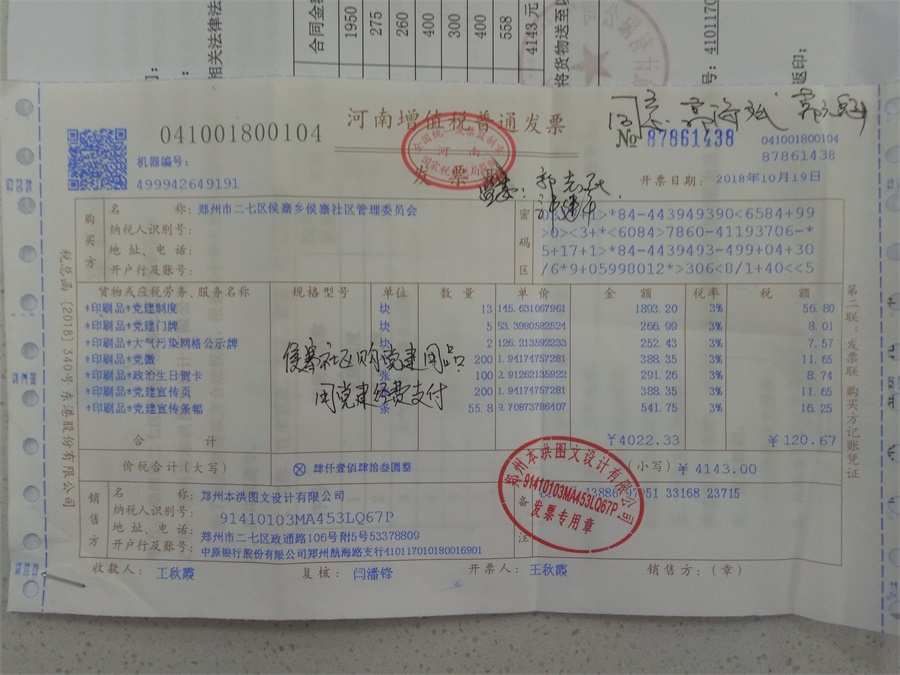 相关法律法
合同金额
1950
275
260
400
300
400
558
4143元
将货物送至
号：4101170
返印：
河南增值税普通发票
041001800104
№ 87861438
041001800104
87861438
机器编号：
499942649191
开票日期： 2018年10月19日
购买方
名称：郑州市二七区侯寨乡侯寨社区管理委员会
纳税人识别号：
地址、电话：
开户行及账号：
密码区
*84-443949390<6584+99
>0><3+*<6084>7860-41193706-*
5+17+1>*84-4439493-499+04+30
/6*9+05998012*>306<8/1+40<<5
货物或应税劳务、服务名称 规格型号 单位 数量 单价 金额 税率 税额
*印刷品*党建制度 块 13 145.631067961 1893.20 3% 56.80
*印刷品*党建门牌 块 5 53.3980582524 266.99 3% 8.01
*印刷品*大气污染网格公示牌 块 2 126.213592233 252.43 3% 7.57
*印刷品*党徽 200 1.94174757281 388.35 3% 11.65
*印刷品*政治生日贺卡 张 100 2.91262135922 291.26 3% 8.74
*印刷品*党建宣传页 200 1.94174757281 388.35 3% 11.65
*印刷品*党建宣传条幅 条 55.8 9.70873786407 541.75 3% 16.25
侯寨社区购党建用品
用党建经费支付
合计 ¥4022.33 ¥120.67
价税合计（大写） ⊗ 肆仟壹佰肆拾叁圆整 （小写）¥ 4143.00
销售方
名称：郑州本洪图文设计有限公司
纳税人识别号：91410103MA453LQ67P
地址、电话：郑州市二七区政通路106号附5号53378809
开户行及账号：中原银行股份有限公司郑州航海路支行410117010180016901
备注
33168 23715
郑州本洪图文设计有限公司
91410103MA453LQ67P
发票专用章
收款人：王秋霞 复核：闫潘锋 开票人：王秋霞 销售方：（章）
税总函〔2018〕340号东港股份有限公司
第二联：发票联 购买方记账凭证